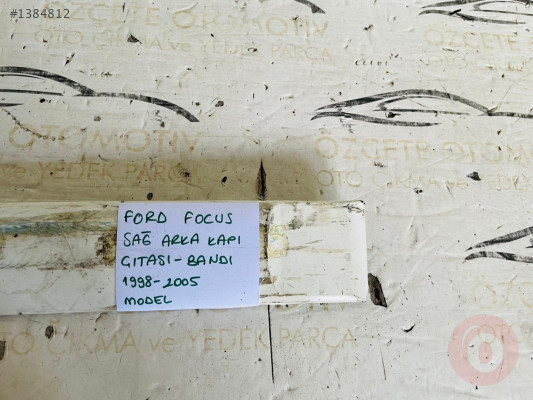 #1384812
ÖZÇETE OTOMOTİV
OTO ÇIKMA ve YEDEK PARÇA
OTOMOTİV
ve YEDEK PARÇA
ÖZÇETE OTOMO
OTO ÇIKMA ve YEDE
FORD FOCUS
SAĞ ARKA KAPI
GITASI-BANDI
1998-2005
MODEL
OTO ÇIKMA ve YEDEK PARÇA